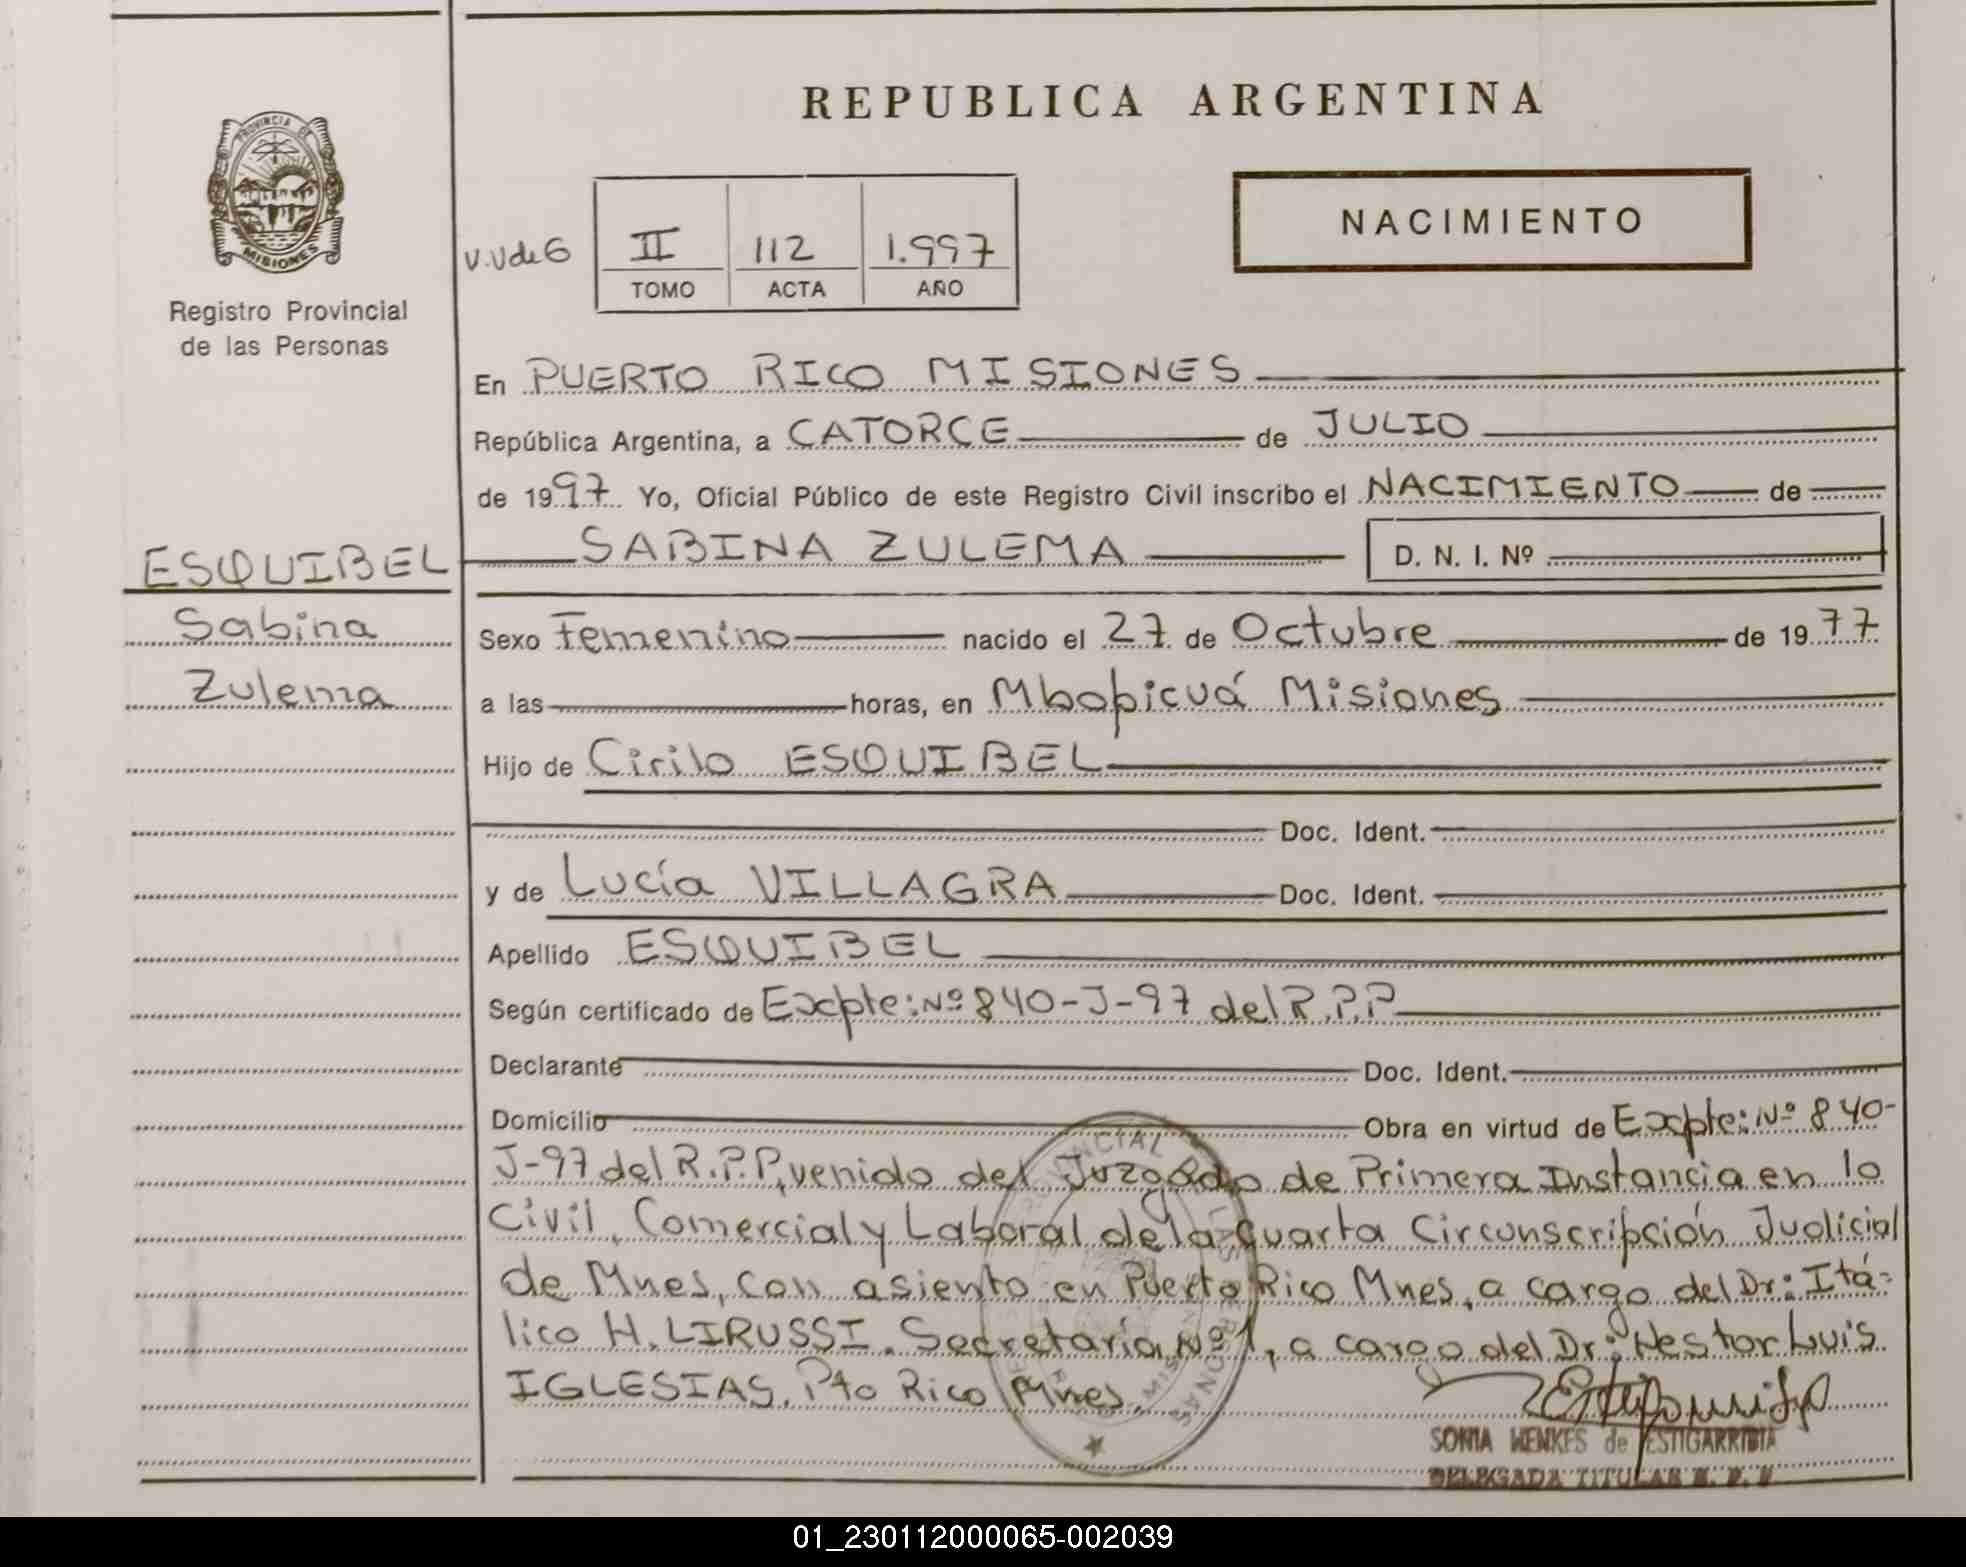 REPUBLICA ARGENTINA
PROVINCIA DE
MISIONES
Registro Provincial
de las Personas
NACIMIENTO
V.Vde6
II 112 1.997
TOMO ACTA AÑO
En PUERTO RICO MISIONES
República Argentina, a CATORCE de JULIO
de 1997 Yo, Oficial Público de este Registro Civil inscribo el NACIMIENTO de
SABINA ZULEMA D. N. I. Nº
ESQUIBEL
Sabina
Zulema
Sexo Femenino nacido el 27 de Octubre de 1977
a las horas, en Mbopicuá Misiones
Hijo de Cirilo ESQUIBEL
Doc. Ident.
y de Lucía VILLAGRA Doc. Ident.
Apellido ESQUIBEL
Según certificado de Expte: Nº 840-J-97 del R.P.P
Declarante Doc. Ident.
Domicilio Obra en virtud de Expte: Nº 840-
J-97 del R.P.P, venido del Juzgado de Primera Instancia en lo
Civil, Comercial y Laboral de la Cuarta Circunscripción Judicial
de Mnes, con asiento en Puerto Rico Mnes, a cargo del Dr: Itá-
lico H. LIRUSSI. Secretaría Nº 1, a cargo del Dr: Nestor Luis
IGLESIAS. Pto Rico Mnes.
SONIA WENKES de ESTIGARRIBIA
DELEGADA TITULAR R. P. P.
01_230112000065-002039